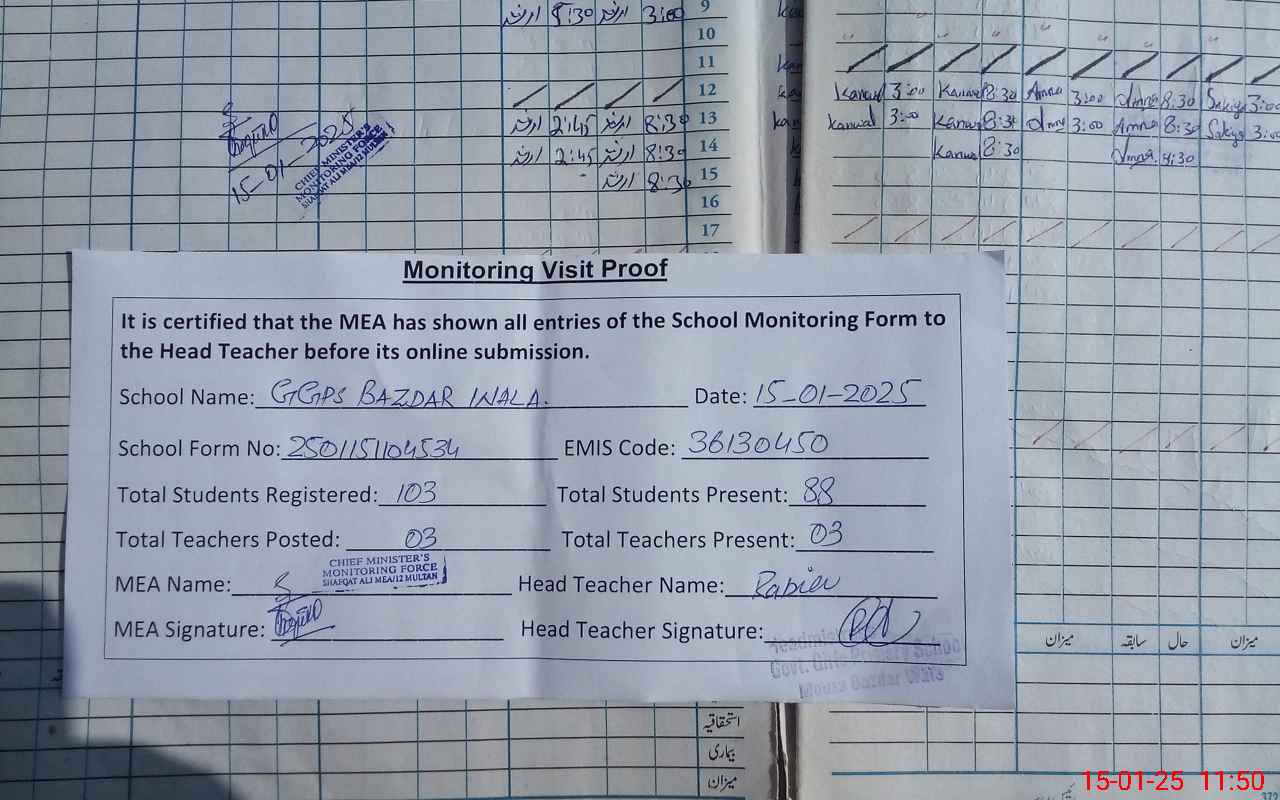 ارشد 8:30 ارشد 3:00 9
10
11
12
ارشد 2:45 ارشد 8:30 13
ارشد 2:45 ارشد 8:30 14
ارشد 8:30 15
16
17
Kanwal 3:00 Kanwal 8:30 Amna 3:00 Amna 8:30 Sakiya 3:00
Kanwal 3:00 Kanwal 8:30 Amna 3:00 Amna 8:30 Sakiya 3:00
Kanwal 8:30 Amna 8:30
15-01-2025
CHIEF MINISTER'S
MONITORING FORCE
SHAFQAT ALI MEA/12 MULTAN
Monitoring Visit Proof
It is certified that the MEA has shown all entries of the School Monitoring Form to
the Head Teacher before its online submission.
School Name: GGPS BAZDAR WALA. Date: 15-01-2025
School Form No: 2501151104534 EMIS Code: 36130450
Total Students Registered: 103 Total Students Present: 88
Total Teachers Posted: 03 Total Teachers Present: 03
CHIEF MINISTER'S
MONITORING FORCE
SHAFQAT ALI MEA/12 MULTAN
MEA Name: Head Teacher Name: Rabia
MEA Signature: Head Teacher Signature:
Govt. Girls Primary School
Mouza Bazdar Wala
میزان سابقہ حال میزان
استحقاقیہ
بیماری
میزان
15-01-25 11:50